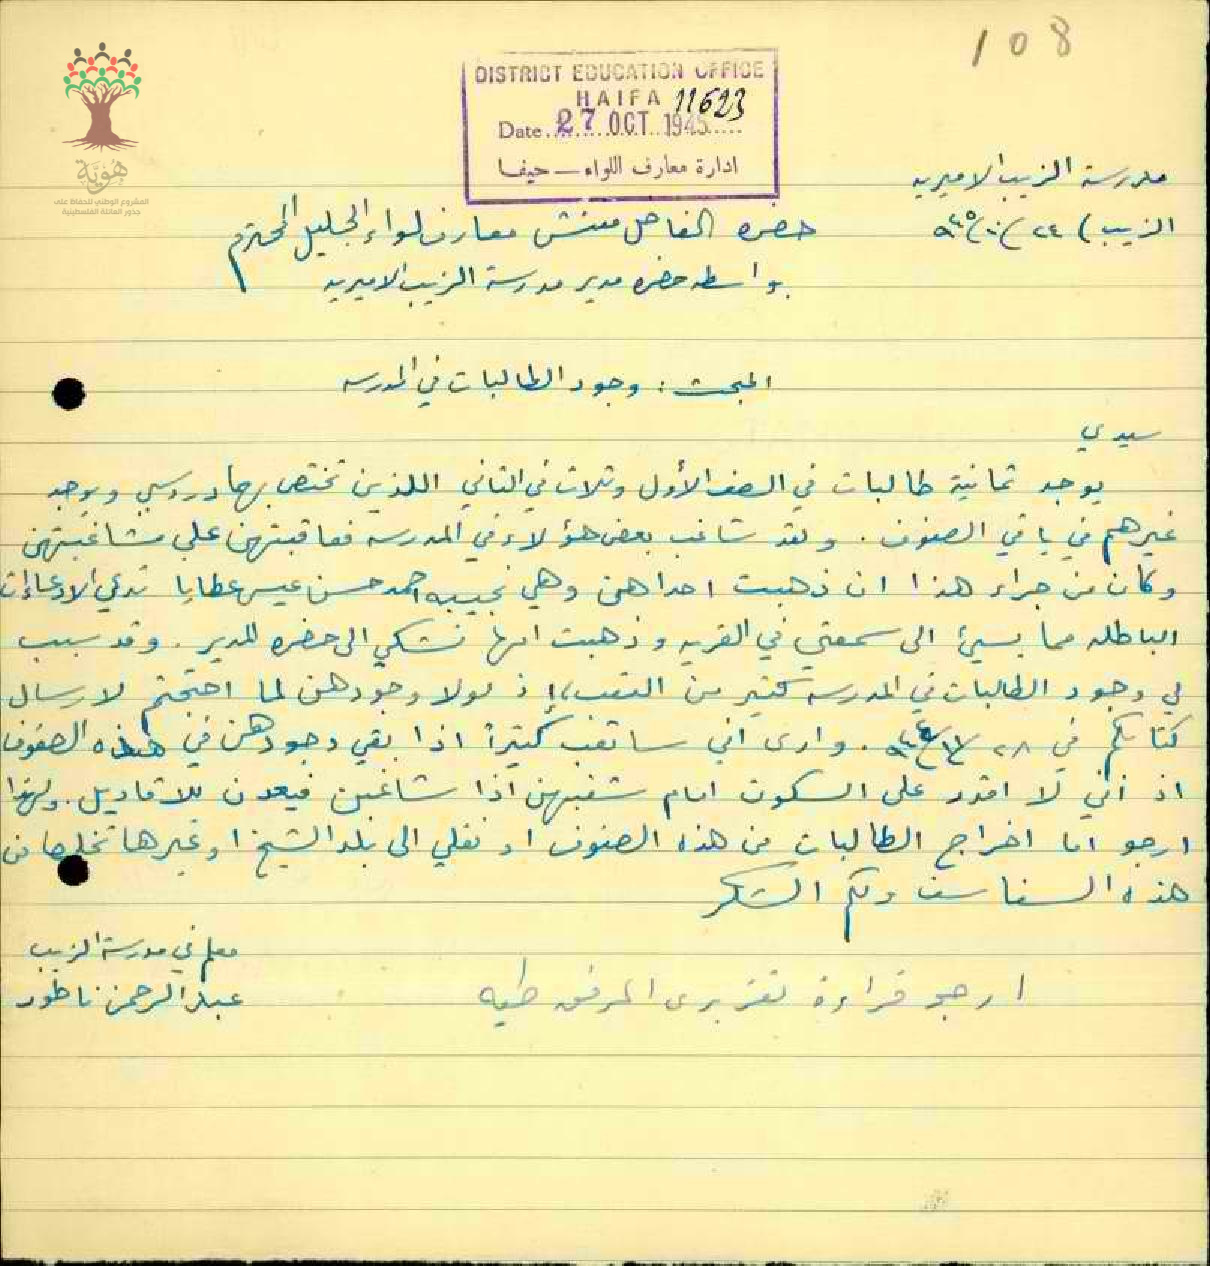 108
DISTRICT EDUCATION OFFICE
HAIFA 11623
Date 27 OCT 1945
ادارة معارف اللواء — حيفا
هُوِيَّة
المشروع الوطني للحفاظ على
جذور العائلة الفلسطينية
مدرسة الزيب الاميريه
الزيب) ٢٤/١٠/٩٤٥
حضره الفاضل مفتش معارف لواء الجليل المحترم
بواسطه حضره مدير مدرسة الزيب الاميريه
المبحث: وجود الطالبات في المدرسه
سيدي
يوجد ثمانية طالبات في الصف الأول وثلاث في الثاني اللذين تختص بهما دروسي ويوجد
غيرهم في باقي الصفوف. ولقد شاغب بعض هؤلاء في المدرسه فعاقبتهن على مشاغبتهن
وكان من جراء هذا ان ذهبت احداهن وهي نجيبه احمد حسن عيس عطايا تدعي الادعاءات
الباطله مما يسيئ الى سمعتي في القريه وذهبت امها تشكي الى حضره المدير. وقد سبب
لي وجود الطالبات في المدرسه كثير من التعب، إذ لولا وجودهن لما احتجتم لارسال
كتابكم في ٢٨. وارى اني ساتعب كثيراً اذا بقي وجودهن في هذه الصفوف
اذ انني لا اقدر على السكوت امام شغبهن اذا شاغبن فيعدن للاقاويل. ولهذا
ارجو اما اخراج الطالبات من هذه الصفوف او نقلي الى بلد الشيخ او غيرها تخلصا من
هذه ولكم الشكر
معلم في مدرسة الزيب
عبد الرحمن ناطور
ارجو قراءة تقريري المرفق طيه